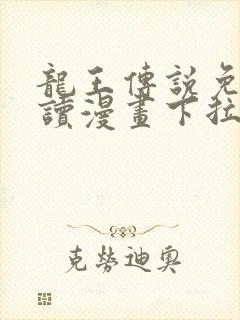 龍王傳說免
讀漫畫下拉
克勞迪奧